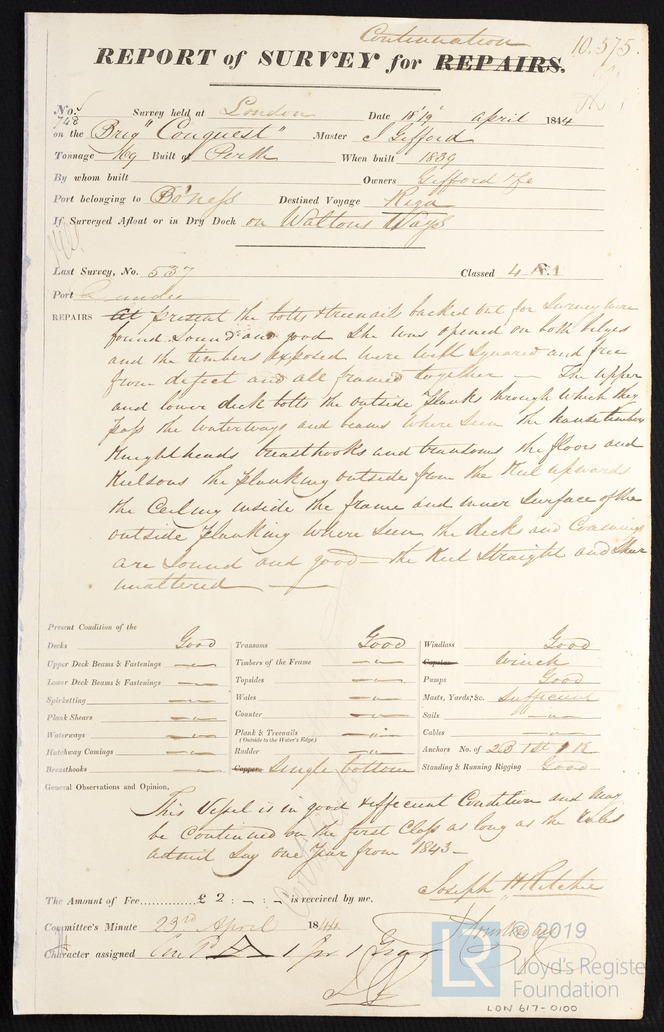 Continuation 10.575.
REPORT of SURVEY for REPAIRS.
No. 748 Survey held at London Date 18, 19 April 1844
on the Brig "Conquest" Master J Gifford
Tonnage Built at Perth When built 1839
By whom built Owners Gifford & Co
Port belonging to Bo'ness Destined Voyage Riga
If Surveyed Afloat or in Dry Dock on Waltons Ways
Last Survey, No. 537 Classed 4 A.1
Port Dundee
REPAIRS At present the bolts & treenails backed out for Survey were
found sound and good She was opened on both bilges
and the timbers exposed were well squared and free
from defect and all framed together — The upper
and lower deck bolts the outside planks through which they
pass the waterways and beams where seen the hawse timbers
Knightheads breasthooks and transoms the floors and
Keelsons the planking outside from the Keel upwards
the Ceiling inside the frame and inner surface of the
outside planking where seen the deck and Coamings
are sound and good — the Keel straight and Sheer
unaltered —
Present Condition of the
Decks Good Transoms Good Windlass Good
Upper Deck Beams & Fastenings —"— Timbers of the Frame —"— Capstan Winch
Lower Deck Beams & Fastenings —"— Topsides —"— Pumps Good
Spirketting —"— Wales —"— Masts, Yards, &c. Sufficient
Plank Shears —"— Counter —"— Sails —"—
Waterways —"— Plank & Treenails —"— Cables —"—
(Outside to the Water's Edge.)
Hatchway Comings —"— Rudder —"— Anchors No. of 2B 1St 1K
Breasthooks —"— Copper Single bottom Standing & Running Rigging Good
General Observations and Opinion,
This Vessel is in good & efficient Condition and may
be Continued on the first Class as long as the Rules
admit Say one Year from 1843 —
Joseph H Ritchie
The Amount of Fee............... £ 2 : - : - is received by me,
Committee's Minute 23rd April 1844
Character assigned
© 2019
LR Lloyd's Register
Foundation
LDN 617-0100